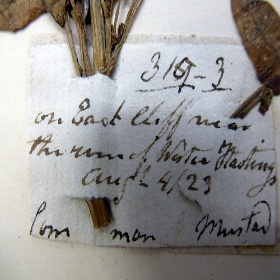 319-3
on East Cliff near
the ruin of Hastings
Augt 4/23
Com mon Mustard